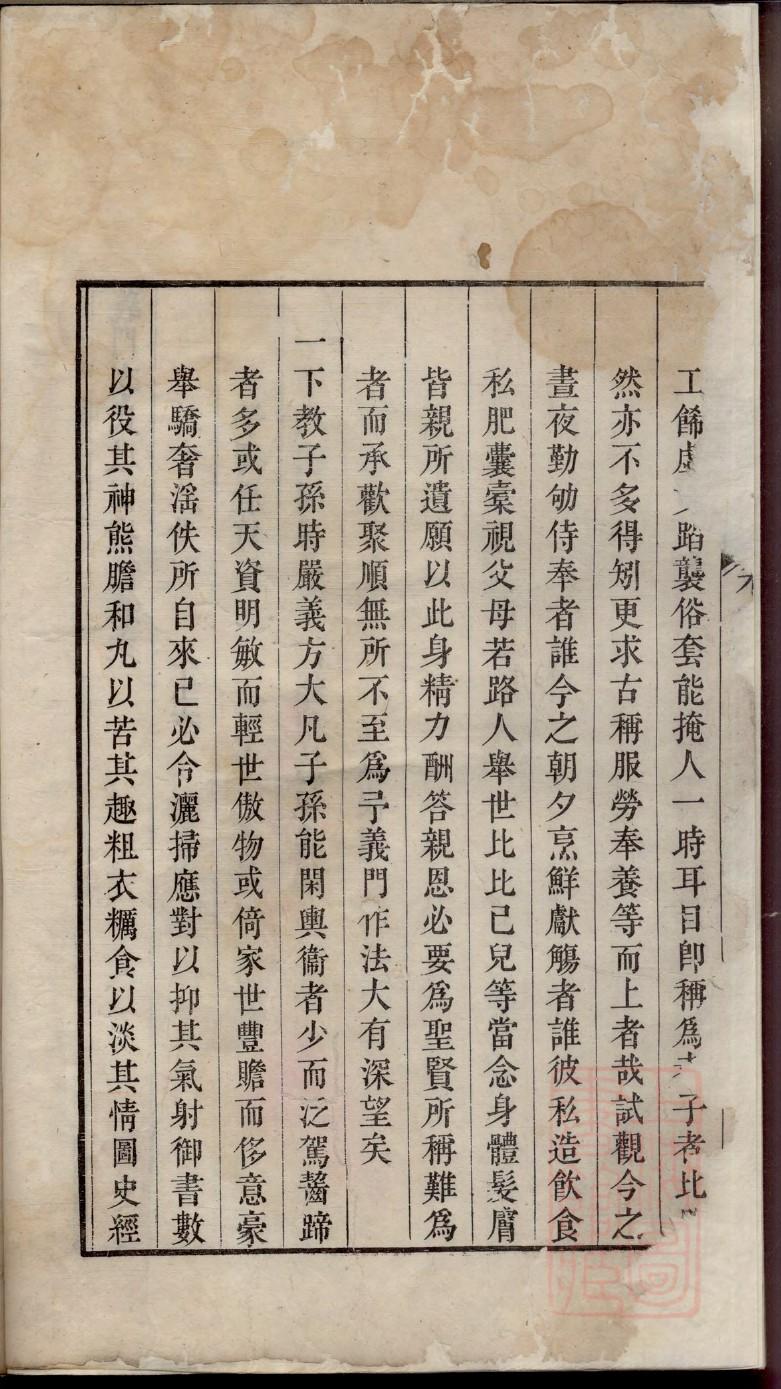 工餙虚　蹈襲俗套能掩人一時耳目卽稱爲　子者比
然亦不多得矧更求古稱服勞奉養等而上者哉試觀今之
晝夜勤劬侍奉者誰今之朝夕烹鮮獻觴者誰彼私造飲食
私肥囊橐視父母若路人舉世比比已兒等當念身體髮膚
皆親所遺願以此身精力酬答親恩必要爲聖賢所稱難爲
者而承歡聚順無所不至爲予義門作法大有深望矣
一下教子孫時嚴義方大凡子孫能閑輿衞者少而泛駕齧蹄
者多或任天資明敏而輕世傲物或倚家世豐贍而侈意豪
舉驕奢滛佚所自來已必令灑掃應對以抑其氣射御書數
以役其神熊膽和丸以苦其趣粗衣糲食以淡其情圖史經